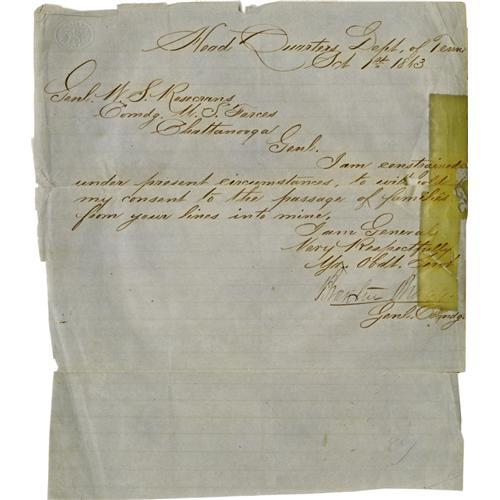 Head Quarters, Dept, of Tenn
Oct 1st 1863
Genl. W. S. Rosecrans
Comdg. U. S. Forces
Chattanooga
Genl.
I am constrained
under present circumstances, to with hold
my consent to the passage of families
from your lines into mine,
I am General
Very Respectfully
Yr. Obdt. Servt
Braxton Bragg
Genl. Comdg.